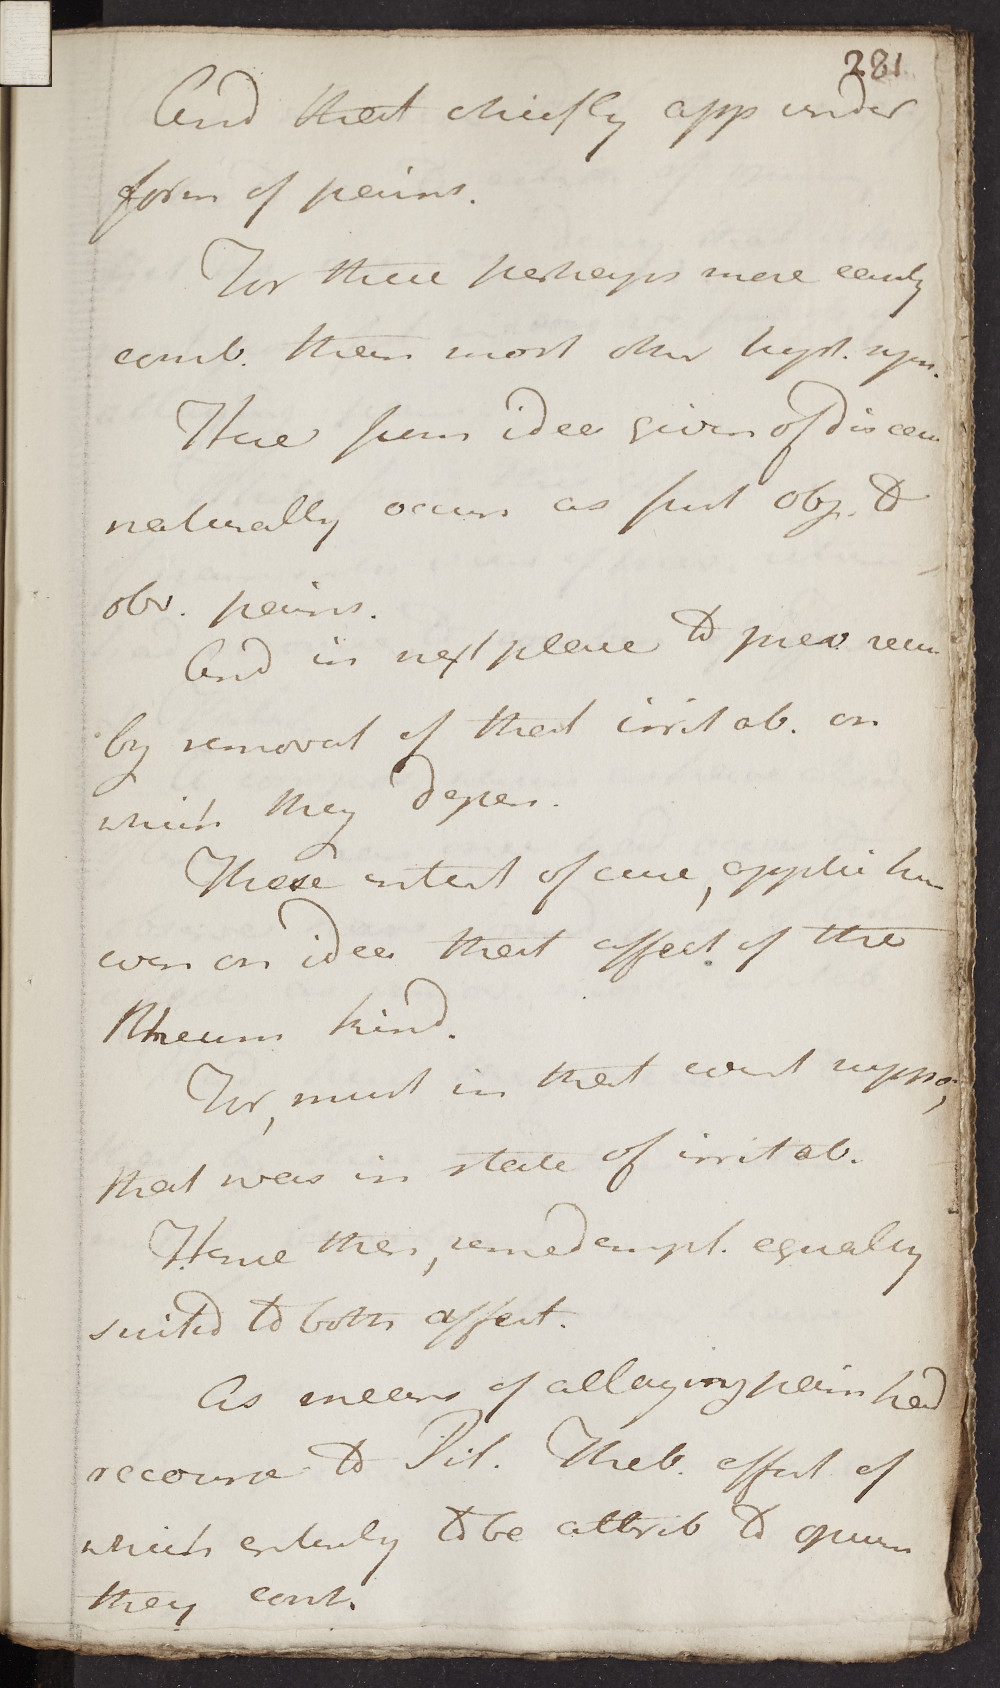 281
And that chiefly app under
form of pains.
For these perhaps more easily
comb. than most other hyst. sym.
Here from idea given of discern
naturally occurs as first obj. to
obv. pains.
And in next place to prev recur
by removal of that irritab. on
which they depen.
These intent of cure, applic here
even on idea that affect. of the
Rheum kind.
For, must in that court suppose,
that was in state of irritab.
Hence then, remed empl. equally
suited to both affect.
As means of allaying pain had
recourse to Pil. Theb. effect of
which entirely to be attrib to opium
they cont.